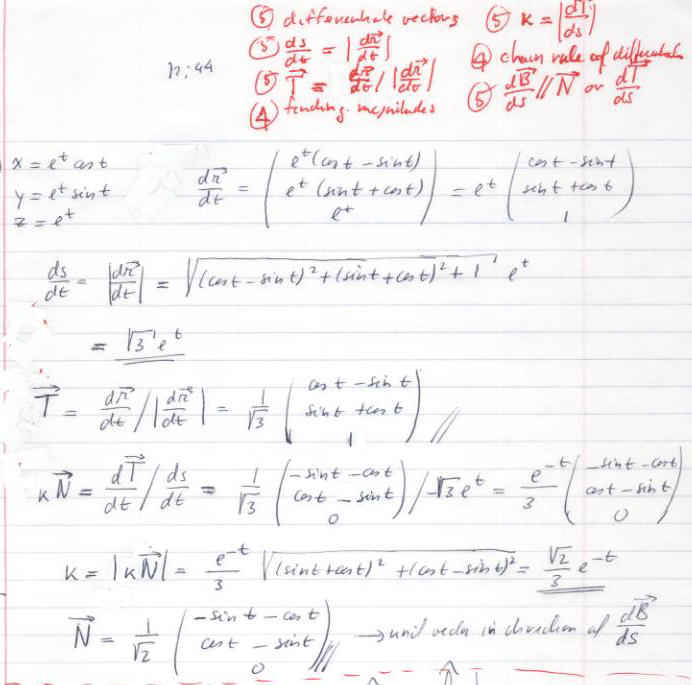 ⑤ differentiate vectors ⑤ K = |dT⃗/ds|
⑤ ds/dt = |dr⃗/dt|
④ chain rule of differentials
⑤ T⃗ = dr⃗/dt / |dr⃗/dt|
⑤ dB⃗/ds // N⃗ or dT⃗/ds
④ finding magnitudes
12:44
x = e^t cos t
y = e^t sin t
z = e^t
dr⃗/dt = ( e^t (cos t - sin t) ; e^t (sin t + cos t) ; e^t ) = e^t ( cos t - sin t ; sin t + cos t ; 1 )
ds/dt = |dr⃗/dt| = √((cos t - sin t)² + (sin t + cos t)² + 1) e^t
= √3 e^t
T⃗ = dr⃗/dt / |dr⃗/dt| = 1/√3 ( cos t - sin t ; sin t + cos t ; 1 ) //
κN⃗ = dT⃗/dt / ds/dt = 1/√3 ( -sin t - cos t ; cos t - sin t ; 0 ) / √3 e^t = e^-t/3 ( -sin t - cos t ; cos t - sin t ; 0 )
K = |κN⃗| = e^-t/3 √((sin t + cos t)² + (cos t - sin t)²) = √2/3 e^-t
N⃗ = 1/√2 ( -sin t - cos t ; cos t - sin t ; 0 ) // → unit vector in direction of dB⃗/ds